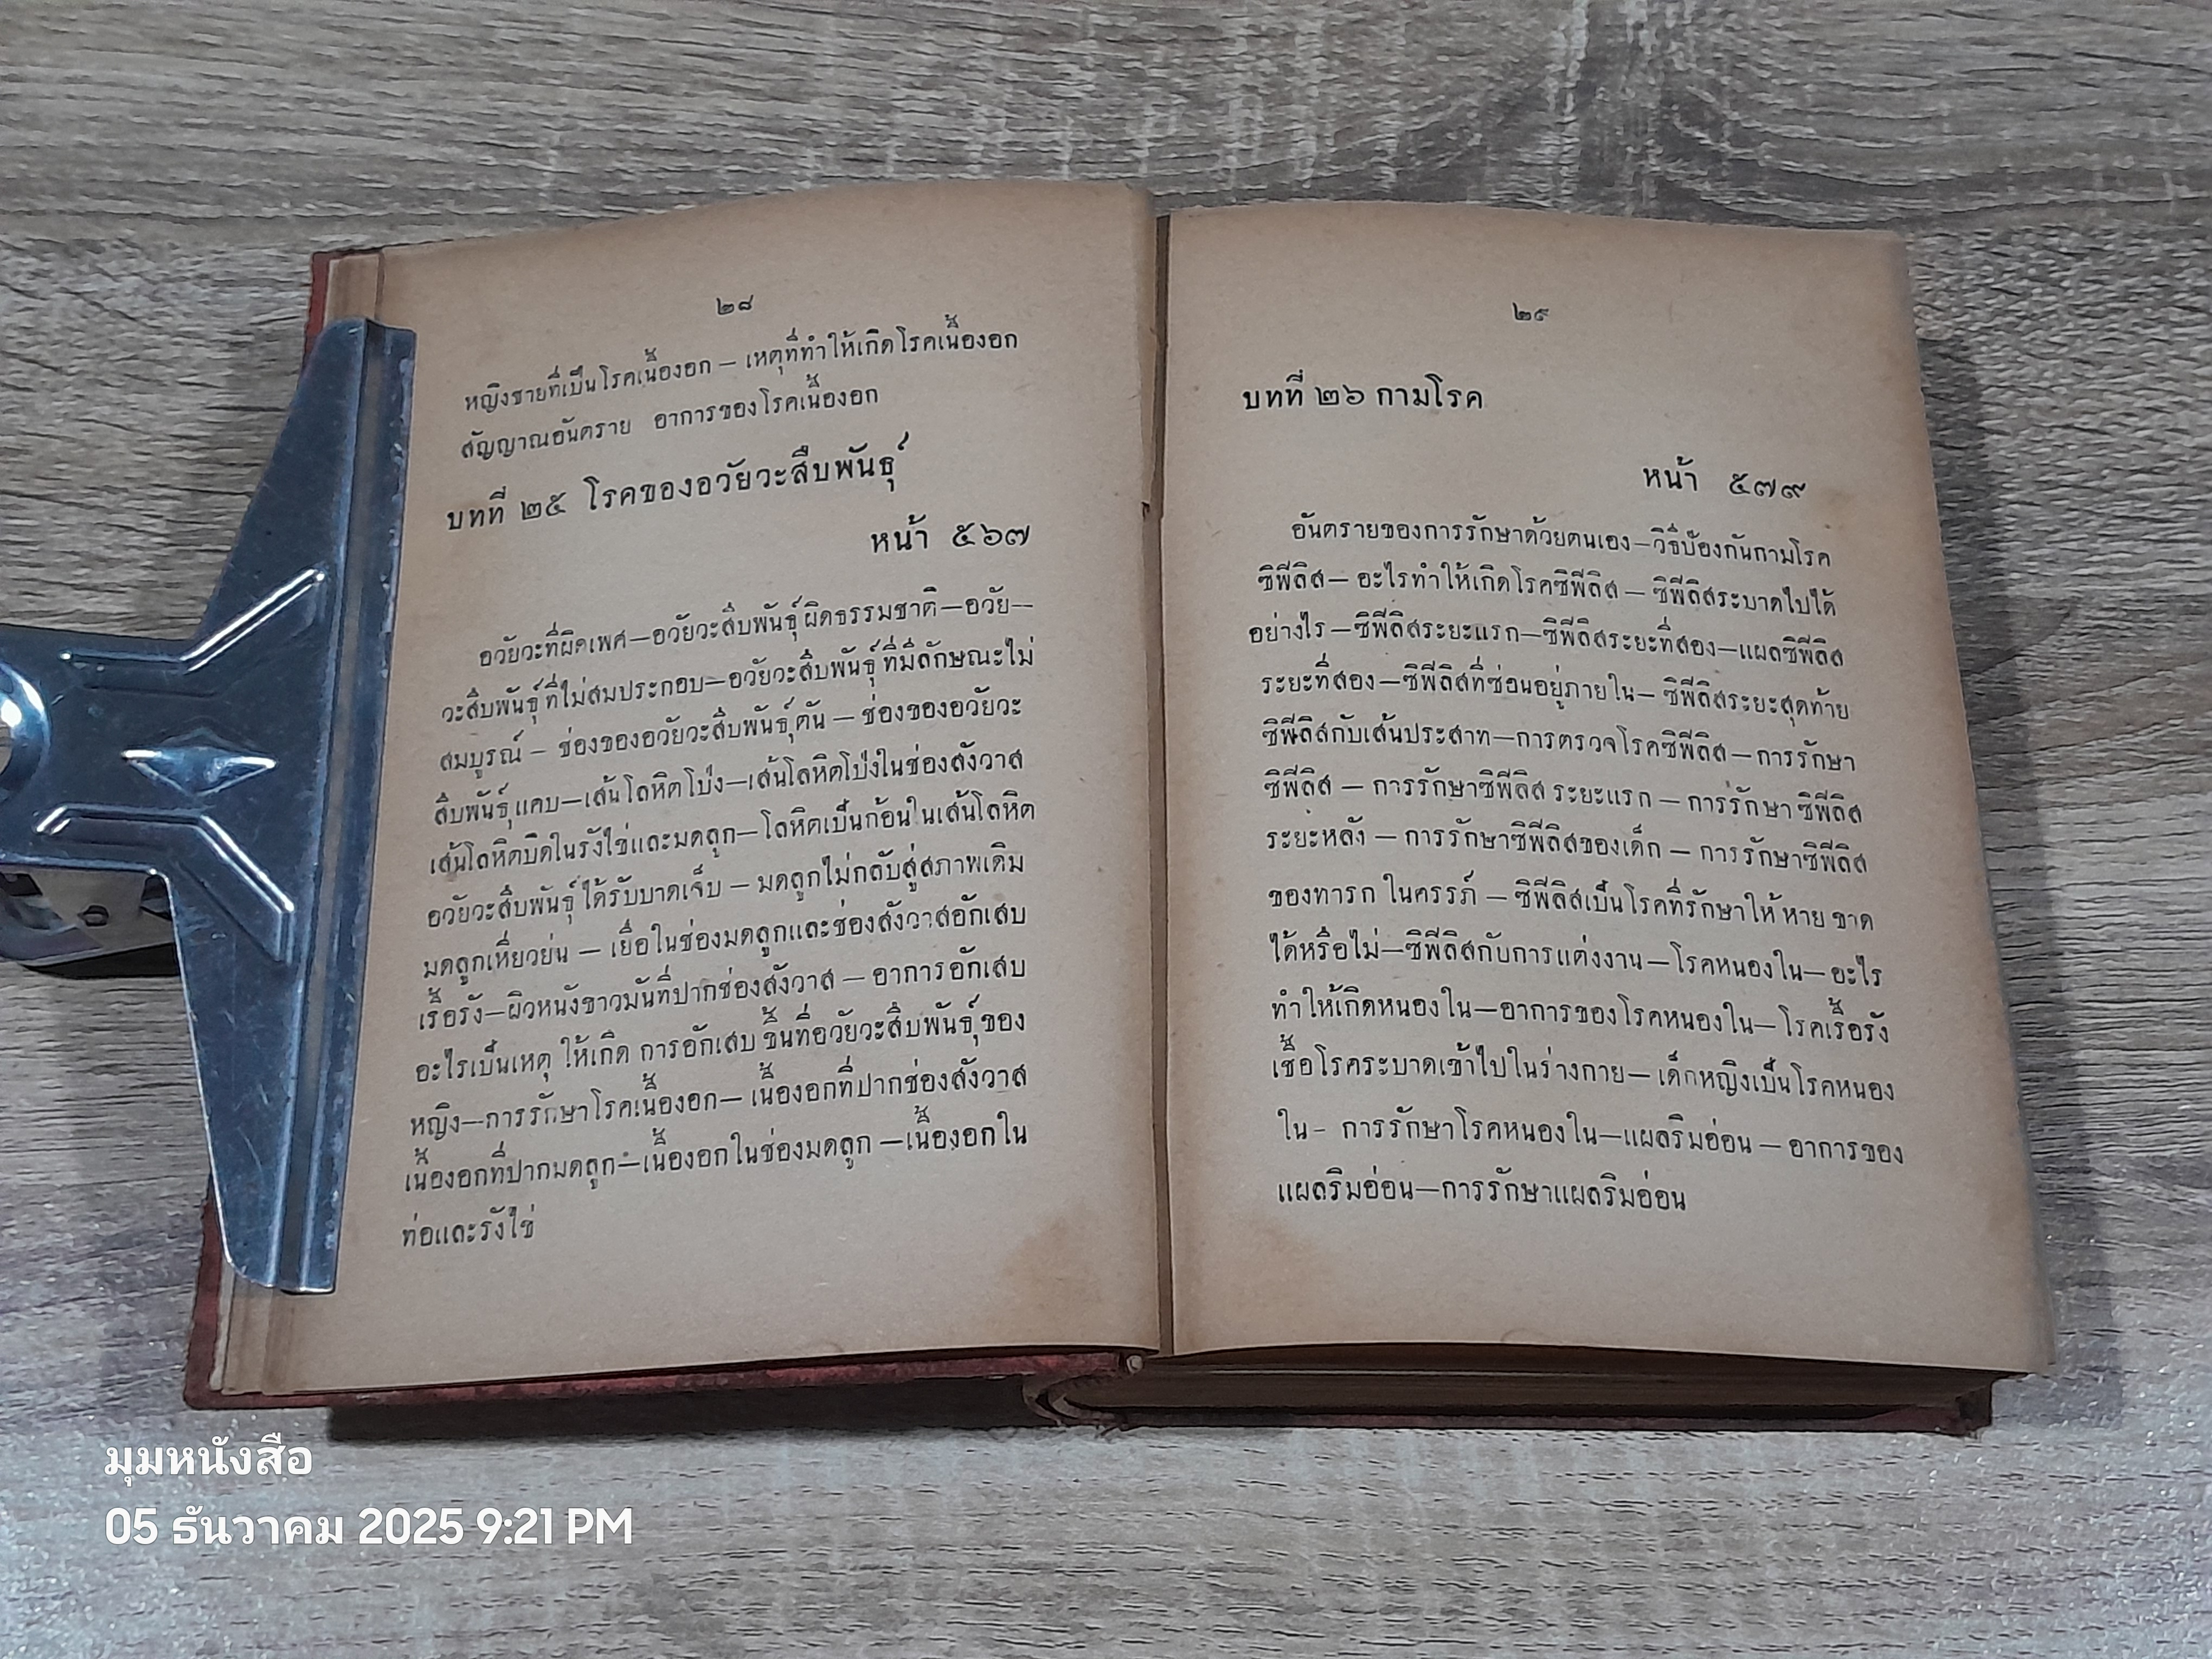 ๒๘
หญิงชายที่เป็นโรคเนื้องอก — เหตุที่ทำให้เกิดโรคเนื้องอก
สัญญาณอันตราย อาการของโรคเนื้องอก
บทที่ ๒๕ โรคของอวัยวะสืบพันธุ์
หน้า ๕๖๗
อวัยวะที่ผิดเพศ—อวัยวะสืบพันธุ์ผิดธรรมชาติ—อวัย—
วะสืบพันธุ์ที่ไม่สมประกอบ—อวัยวะสืบพันธุ์ที่มีลักษณะไม่
สมบูรณ์ — ช่องของอวัยวะสืบพันธุ์ตัน — ช่องของอวัยวะ
สืบพันธุ์แคบ—เส้นโลหิตโป่ง—เส้นโลหิตโป่งในช่องสังวาส
เส้นโลหิตบิดในรังไข่และมดลูก—โลหิตเป็นก้อนในเส้นโลหิต
อวัยวะสืบพันธุ์ได้รับบาดเจ็บ — มดลูกไม่กลับสู่สภาพเดิม
มดลูกเหี่ยวย่น — เยื่อในช่องมดลูกและช่องสังวาสอักเสบ
เรื้อรัง—ผิวหนังขาวมันที่ปากช่องสังวาส — อาการอักเสบ
อะไรเป็นเหตุ ให้เกิด การอักเสบ ขึ้นที่อวัยวะสืบพันธุ์ของ
หญิง—การรักษาโรคเนื้องอก— เนื้องอกที่ปากช่องสังวาส
เนื้องอกที่ปากมดลูก—เนื้องอกในช่องมดลูก —เนื้องอกใน
ท่อและรังไข่
๒๙
บทที่ ๒๖ กามโรค
หน้า ๕๗๙
อันตรายของการรักษาด้วยตนเอง—วิธีป้องกันกามโรค
ซิฟิลิส— อะไรทำให้เกิดโรคซิฟิลิส — ซิฟิลิสระบาดไปได้
อย่างไร—ซิฟิลิสระยะแรก—ซิฟิลิสระยะที่สอง—แผลซิฟิลิส
ระยะที่สอง—ซิฟิลิสที่ซ่อนอยู่ภายใน— ซิฟิลิสระยะสุดท้าย
ซิฟิลิสกับเส้นประสาท—การตรวจโรคซิฟิลิส—การรักษา
ซิฟิลิส — การรักษาซิฟิลิส ระยะแรก — การรักษา ซิฟิลิส
ระยะหลัง — การรักษาซิฟิลิสของเด็ก — การรักษาซิฟิลิส
ของทารก ในครรภ์ — ซิฟิลิสเป็นโรคที่รักษาให้ หาย ขาด
ได้หรือไม่—ซิฟิลิสกับการแต่งงาน—โรคหนองใน— อะไร
ทำให้เกิดหนองใน—อาการของโรคหนองใน—โรคเรื้อรัง
เชื้อโรคระบาดเข้าไปในร่างกาย— เด็กหญิงเป็นโรคหนอง
ใน- การรักษาโรคหนองใน—แผลริมอ่อน — อาการของ
แผลริมอ่อน—การรักษาแผลริมอ่อน
มุมหนังสือ
05 ธันวาคม 2025 9:21 PM